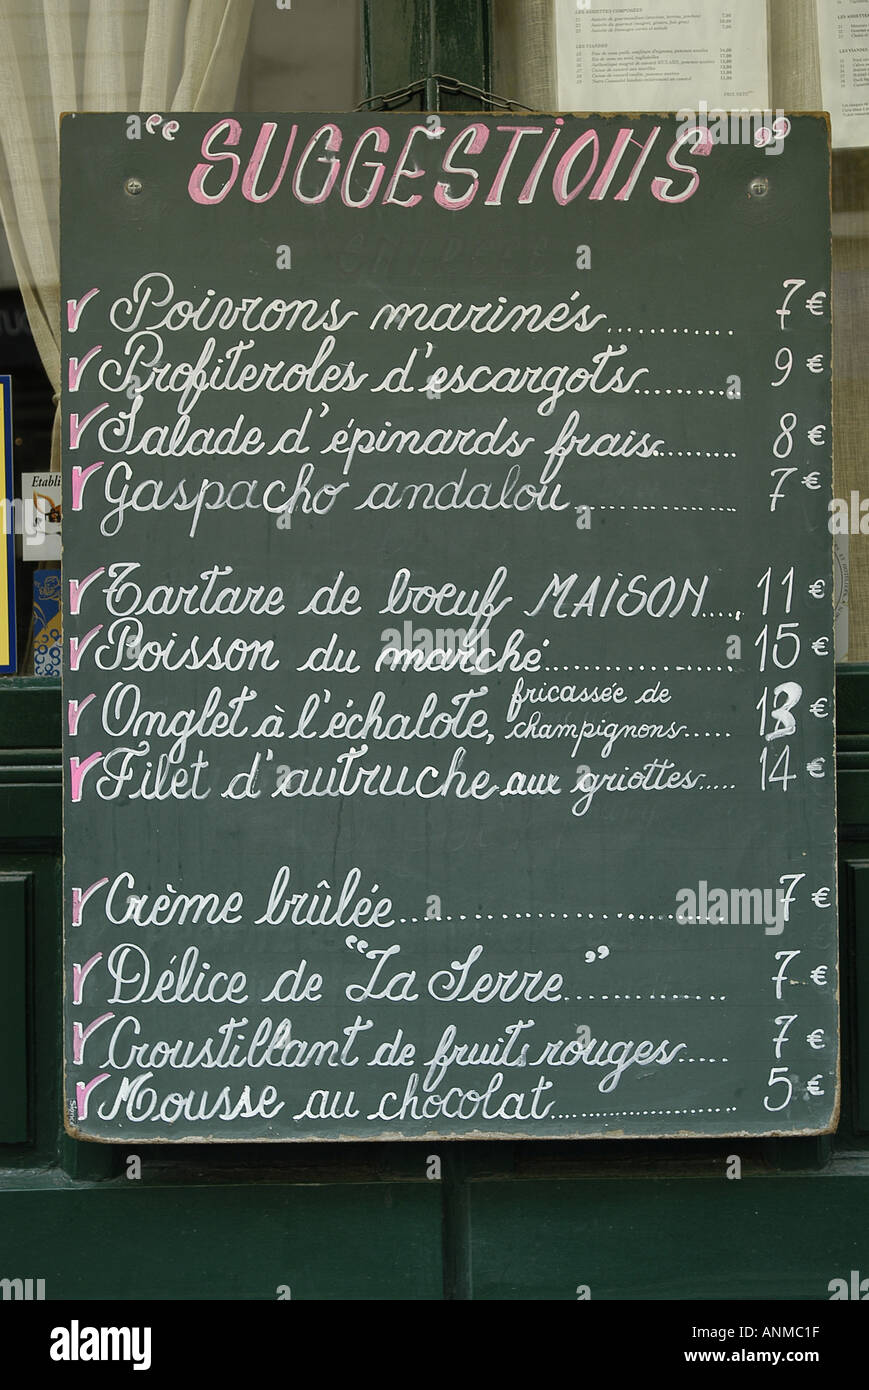 LES ASSIETTES COMPOSÉES
LES VIANDES
" SUGGESTIONS "
Poivrons marinés............ 7 €
Profiteroles d'escargots.......... 9 €
Salade d'épinards frais......... 8 €
Gaspacho andalou................ 7 €
Tartare de boeuf MAISON..... 11 €
Poisson du marché................... 15 €
Onglet à l'échalote, fricassée de champignons..... 13 €
Filet d'autruche aux griottes..... 14 €
Crème brûlée............................ 7 €
Délice de "La Serre"............. 7 €
Croustillant de fruits rouges..... 7 €
Mousse au chocolat................... 5 €
Etabli
alamy
Image ID: ANMC1F
www.alamy.com